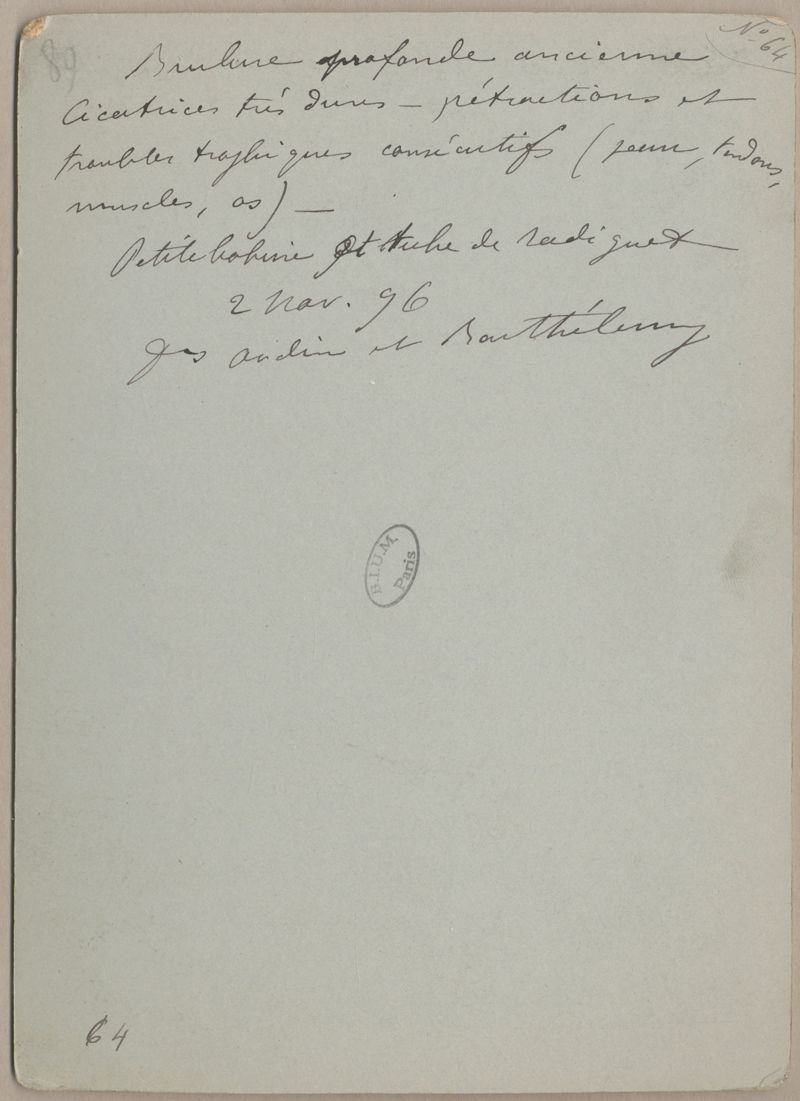 No 64
89
Brulure profonde ancienne
Cicatrices très dures – rétractions et
troubles trophiques consécutifs (peau, tendons,
muscles, os) –
Petite bobine et tube de radiguet
2 nov. 96
Drs Oudin et Barthélemy
B.I.U.M.
Paris
64